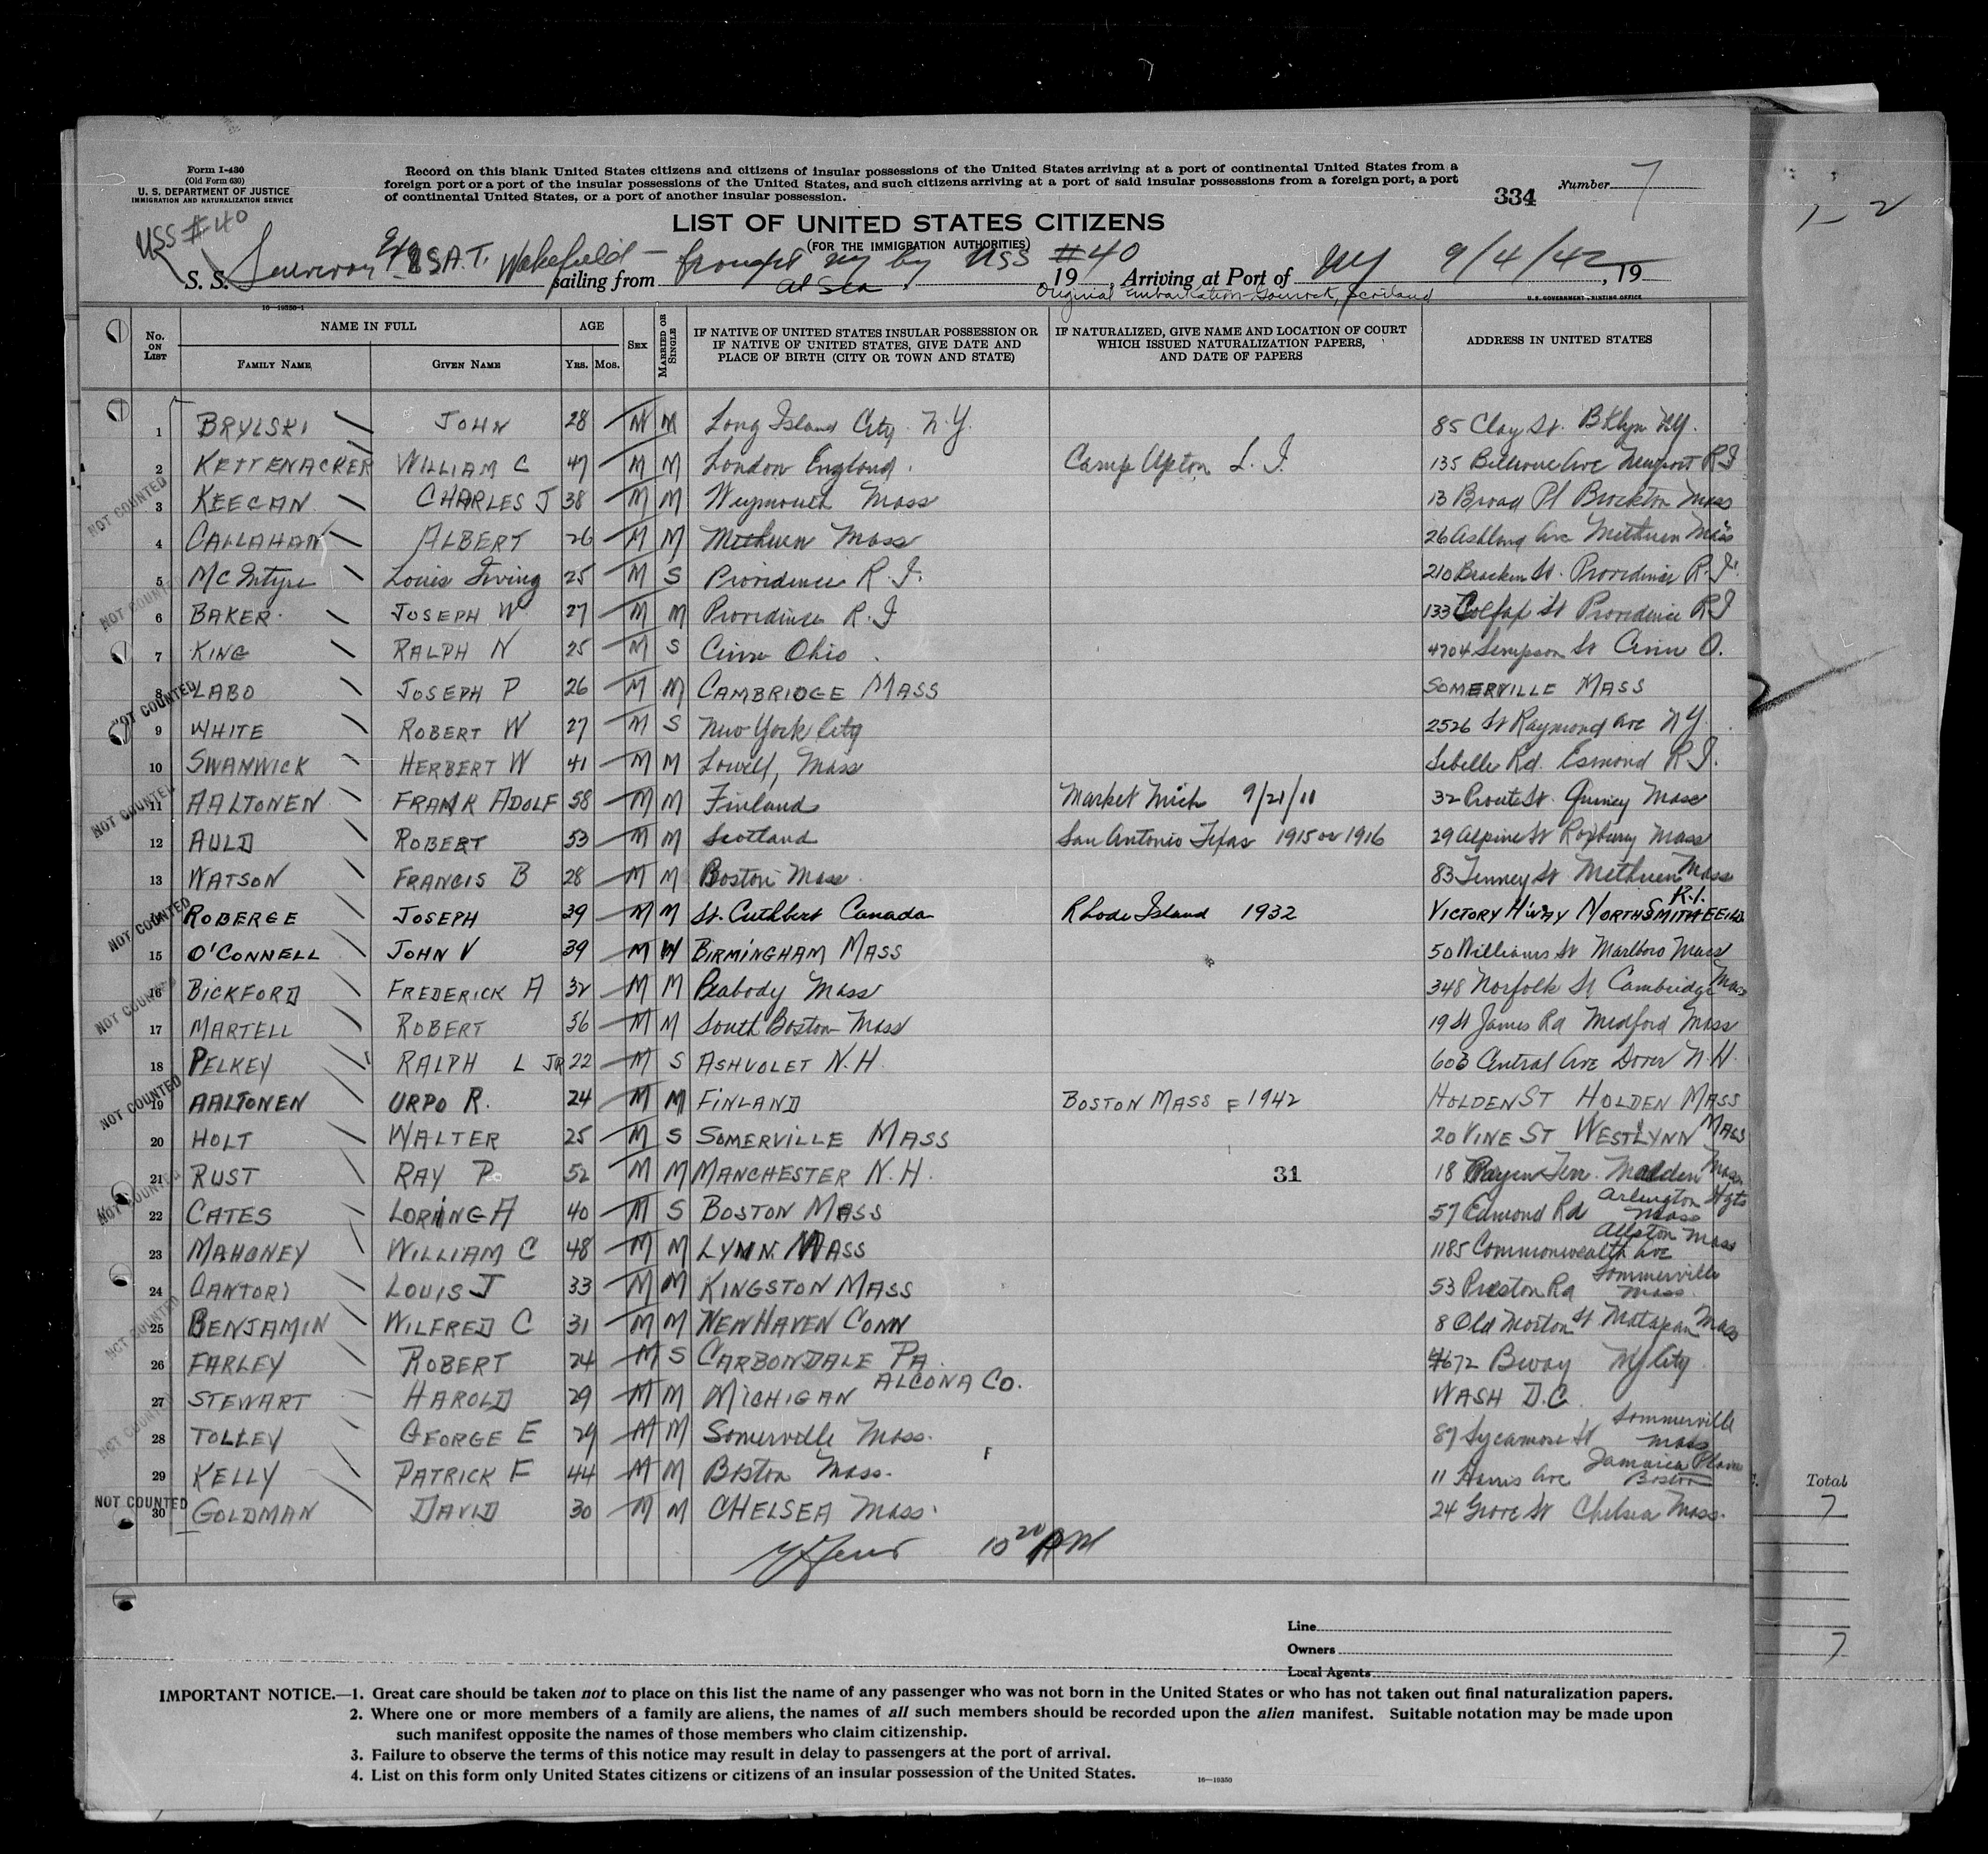 Form I-430
(Old Form 630)
U. S. DEPARTMENT OF JUSTICE
IMMIGRATION AND NATURALIZATION SERVICE
Record on this blank United States citizens and citizens of insular possessions of the United States arriving at a port of continental United States from a
foreign port or a port of the insular possessions of the United States, and such citizens arriving at a port of said insular possessions from a foreign port, a port
of continental United States, or a port of another insular possession.
334 Number 7
1-2
USS #40
LIST OF UNITED STATES CITIZENS
(FOR THE IMMIGRATION AUTHORITIES)
S. S. Survivors U.S.A.T. Wakefield - sailing from brought by USS #40 19 , Arriving at Port of NY 9/4/42 , 19
at Sea
Original Embarkation - Gourock, Scotland
16-19350-1
U. S. GOVERNMENT PRINTING OFFICE
No. ON LIST
NAME IN FULL
FAMILY NAME
GIVEN NAME
AGE
YRS. MOS.
SEX
MARRIED OR SINGLE
IF NATIVE OF UNITED STATES INSULAR POSSESSION OR
IF NATIVE OF UNITED STATES, GIVE DATE AND
PLACE OF BIRTH (CITY OR TOWN AND STATE)
IF NATURALIZED, GIVE NAME AND LOCATION OF COURT
WHICH ISSUED NATURALIZATION PAPERS,
AND DATE OF PAPERS
ADDRESS IN UNITED STATES
1 BRYLSKI JOHN 28 M M Long Island City N.Y. 85 Clay St. Bklyn NY.
2 KETTENACRER WILLIAM C 47 M M London England. Camp Upton L. I. 135 Bellevue Ave Newport R I
3 KEEGAN CHARLES J 38 M M Weymouth Mass 13 Broad Pl Brockton Mass
4 CALLAHAN ALBERT 26 M M Methuen Mass 26 Ashland Ave Methuen Mass
5 McIntyre Louis Irving 25 M S Providence R. I. 210 St. Providence R. I.
6 BAKER JOSEPH W 27 M M Providence R. I 133 Colfax St Providence R I
7 KING RALPH N 25 M S Cinn Ohio. 4704 Simpson St Cinn O.
8 LABO JOSEPH P 26 M M CAMBRIDGE MASS SOMERVILLE MASS
9 WHITE ROBERT W 27 M S New York City 2526 St Raymond Ave N Y.
10 SWANWICK HERBERT W 41 M M Lowell, Mass Rd. Esmond R. I.
11 AALTONEN FRANK ADOLF 58 M M Finland Market Mich 9/21/11 32 St. Quincy Mass
12 AULD ROBERT 53 M M Scotland San Antonio Texas 1915 or 1916 29 Alpine St Roxbury Mass
13 WATSON FRANCIS B 28 M M Boston Mass. 83 Tenney St Methuen Mass
14 ROBERGE JOSEPH 39 M M St. Cuthbert Canada Rhode Island 1932 VICTORY H'WAY NORTH SMITHFIELD R.I.
15 O'CONNELL JOHN V 39 M W BIRMINGHAM MASS 50 Williams St Marlboro Mass
16 BICKFORD FREDERICK A 32 M M Peabody Mass 348 Norfolk St Cambridge Mass
17 MARTELL ROBERT 56 M M South Boston Mass 19 St James Rd Medford Mass
18 PELKEY RALPH L JR 22 M S ASHUOLET N.H. 603 Central Ave Dover N. H.
19 AALTONEN URPO R. 24 M M FINLAND BOSTON MASS F 1942 HOLDEN ST HOLDEN MASS
20 HOLT WALTER 25 M S SOMERVILLE MASS 20 VINE ST WEST LYNN MASS
21 RUST RAY P. 52 M M MANCHESTER N.H. 31 18 Terr. Malden Mass
22 CATES LORING A 40 M S BOSTON MASS 57 Edmond Rd Arlington Hgts Mass
23 MAHONEY WILLIAM C 48 M M LYNN. MASS 1185 Commonwealth Ave Allston Mass
24 CANTORI LOUIS J 33 M M KINGSTON MASS 53 Preston Rd Sommerville Mass.
25 BENJAMIN WILFRED C 31 M M NEW HAVEN CONN 8 Old Morton St Matapan Mass
26 FARLEY ROBERT 24 M S CARBONDALE PA. 4672 Bway NY City
27 STEWART HAROLD 29 M M MICHIGAN ALCONA CO. WASH D.C.
28 TOLLEY GEORGE E 29 M M Somerville Mass. 87 Sycamore St Sommerville Mass
29 KELLY PATRICK F 44 M M Boston Mass. 11 Harris Ave Jamaica Plains Boston
30 GOLDMAN DAVID 30 M M CHELSEA Mass. 24 Grove St Chelsea Mass.
NOT COUNTED
NOT COUNTED
NOT COUNTED
NOT COUNTED
NOT COUNTED
NOT COUNTED
NOT COUNTED
NOT COUNTED
NOT COUNTED
NOT COUNTED
NOT COUNTED
10 20 PM
Total
7
7
Line
Owners
Local Agents
IMPORTANT NOTICE.—1. Great care should be taken not to place on this list the name of any passenger who was not born in the United States or who has not taken out final naturalization papers.
2. Where one or more members of a family are aliens, the names of all such members should be recorded upon the alien manifest. Suitable notation may be made upon
such manifest opposite the names of those members who claim citizenship.
3. Failure to observe the terms of this notice may result in delay to passengers at the port of arrival.
4. List on this form only United States citizens or citizens of an insular possession of the United States.
16-19350